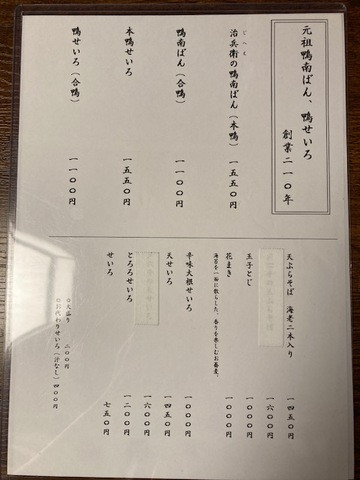 元祖鴨南ばん、鴨せいろ
創業二一〇年
治兵衛の鴨南ばん(本鴨) 一五五〇円
鴨南ばん(合鴨) 一一〇〇円
本鴨せいろ 一五五〇円
鴨せいろ(合鴨) 一一〇〇円
天ぷらそば 海老二本入り 一四五〇円
一六〇〇円
玉子とじ 一〇〇〇円
花まき 一〇〇〇円
海苔を一面に散らした、香りを楽しむお蕎麦。
辛味大根せいろ 一〇〇〇円
天せいろ 一四五〇円
一六〇〇円
とろろせいろ 一二〇〇円
せいろ 七五〇円
◎大盛り 二〇〇円
◎お代わりせいろ(汁なし) 四〇〇円